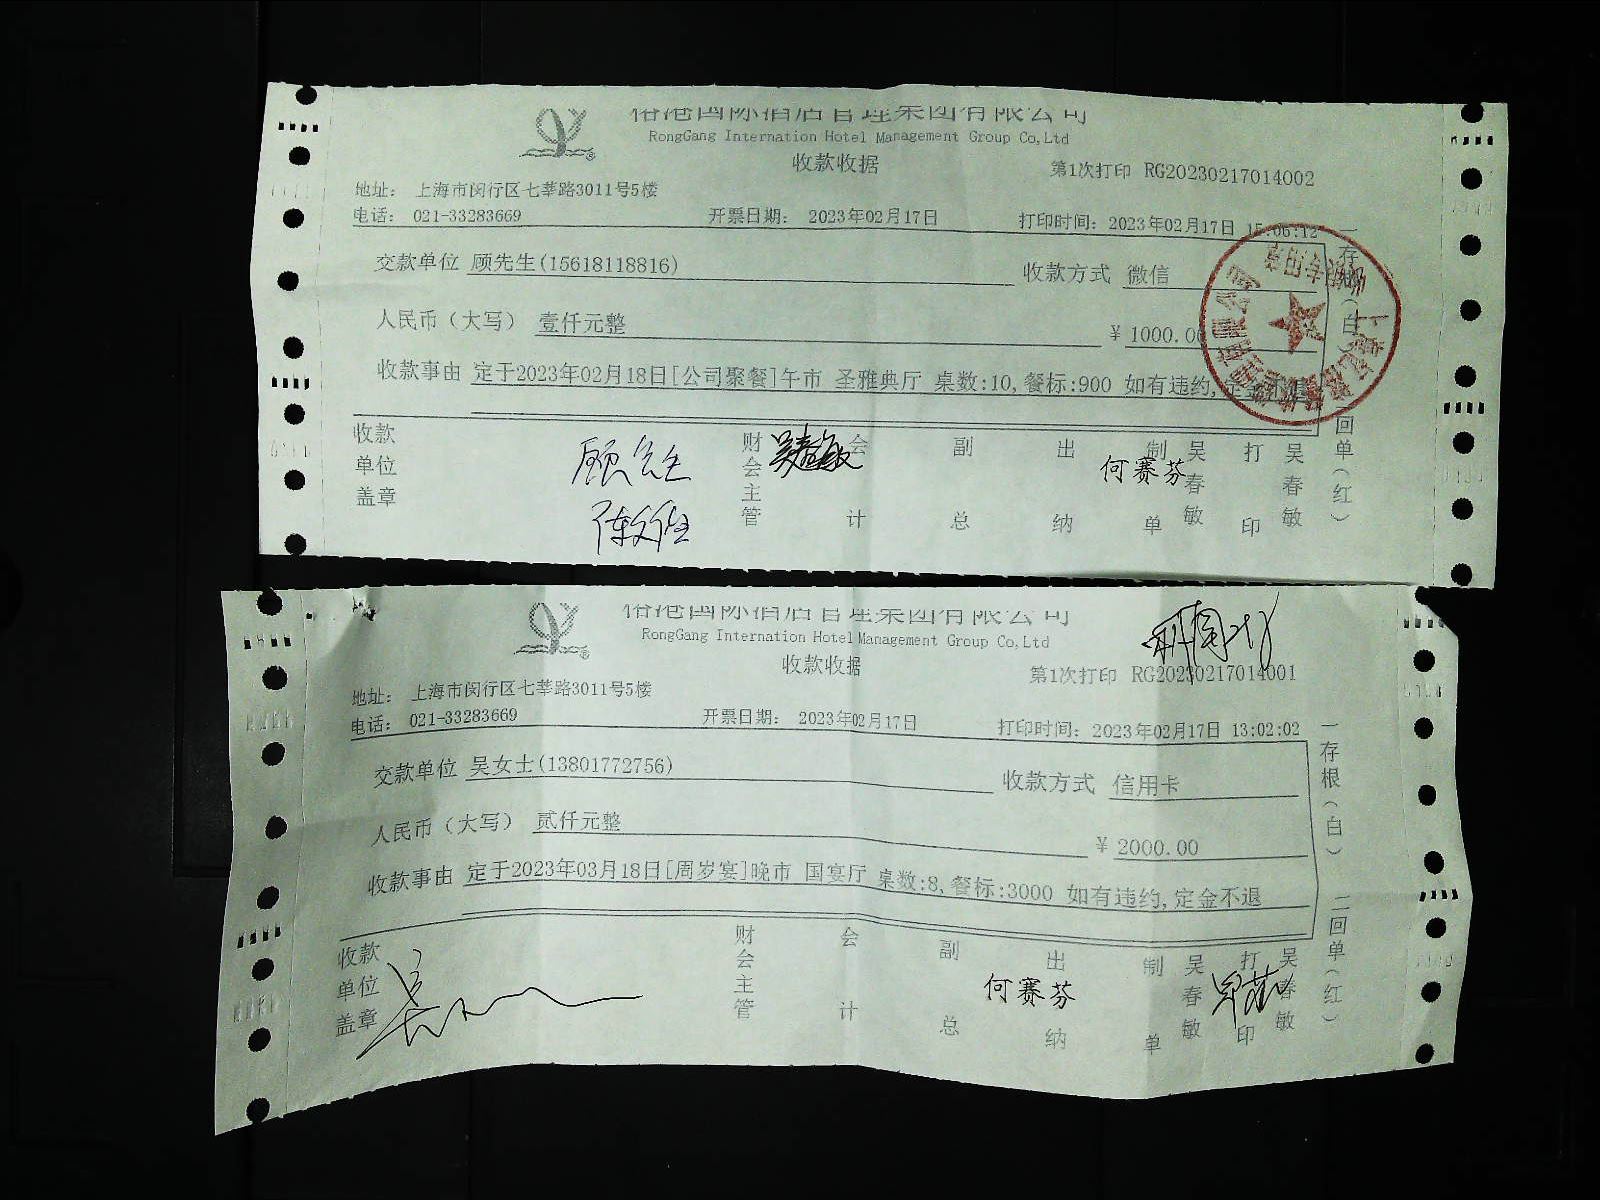 裕港国际酒店管理集团有限公司
RongGang Internation Hotel Management Group Co,Ltd
收款收据
第1次打印 RG20230217014002
地址： 上海市闵行区七莘路3011号5楼
电话： 021-33283669 开票日期： 2023年02月17日 打印时间：2023年02月17日 15:06:12
交款单位 顾先生(15618118816) 收款方式 微信
人民币（大写） 壹仟元整 ￥1000.00
收款事由 定于2023年02月18日[公司聚餐]午市 圣雅典厅 桌数:10,餐标:900 如有违约,定金不退
收款单位盖章 顾先生 财会主管 吴春敏 会计 副总 出纳 何赛芬 制单 吴春敏 打印 吴春敏
一存根（白） 二回单（红）
裕港国际酒店管理集团有限公司
RongGang Internation Hotel Management Group Co,Ltd
收款收据
第1次打印 RG20230217014001
地址： 上海市闵行区七莘路3011号5楼
电话： 021-33283669 开票日期： 2023年02月17日 打印时间：2023年02月17日 13:02:02
交款单位 吴女士(13801772756) 收款方式 信用卡
人民币（大写） 贰仟元整 ￥2000.00
收款事由 定于2023年03月18日[周岁宴]晚市 国宴厅 桌数:8,餐标:3000 如有违约,定金不退
收款单位盖章 财会主管 会计 副总 出纳 何赛芬 制单 吴春敏 打印 吴春敏
一存根（白） 二回单（红）